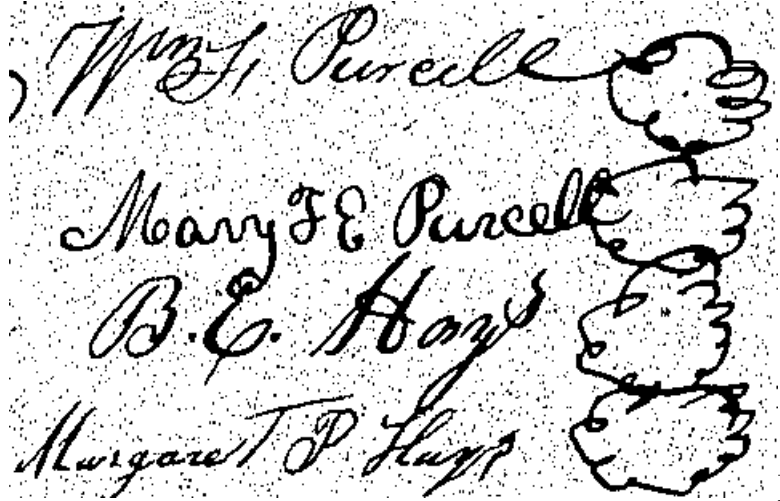 Wm F. Purcell
Mary F E Purcell
B. E. Hays
Margaret P Hays